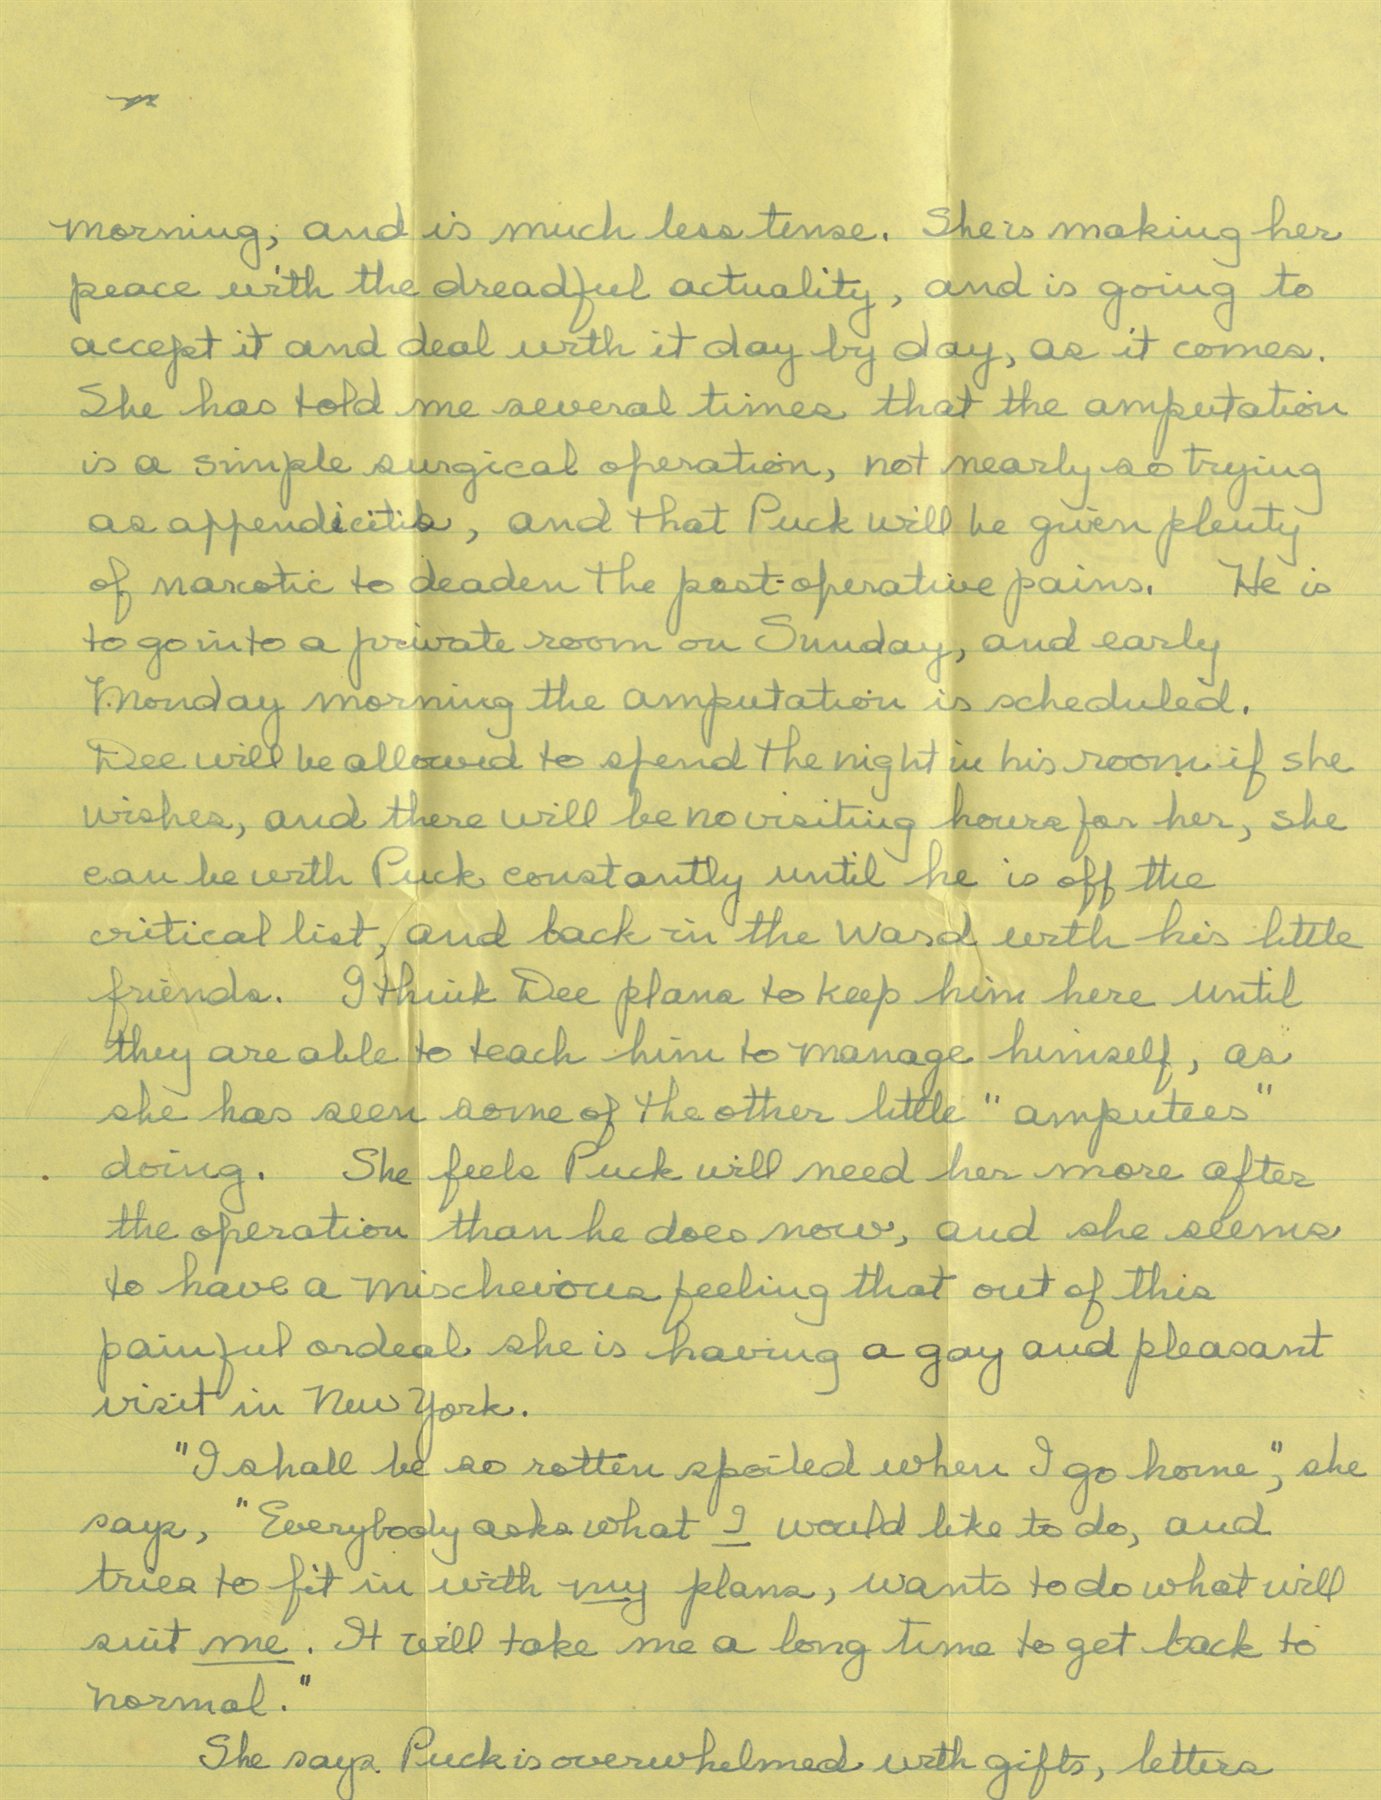 morning, and is much less tense. She is making her
peace with the dreadful actuality, and is going to
accept it and deal with it day by day, as it comes.
She has told me several times that the amputation
is a simple surgical operation, not nearly so trying
as appendicitis, and that Puck will be given plenty
of narcotic to deaden the post-operative pains. He is
to go into a private room on Sunday, and early
Monday morning the amputation is scheduled.
Dee will be allowed to spend the night in his room if she
wishes, and there will be no visiting hours for her, she
can be with Puck constantly until he is off the
critical list, and back in the ward with his little
friends. I think Dee plans to keep him here until
they are able to teach him to manage himself, as
she has seen some of the other little "amputees"
doing. She feels Puck will need her more after
the operation than he does now, and she seems
to have a mischeivous feeling that out of this
painful ordeal she is having a gay and pleasant
visit in New York.
"I shall be so rotten spoiled when I go home", she
says, "Everybody asks what I would like to do, and
tries to fit in with my plans, wants to do what will
suit me. It will take me a long time to get back to
normal."
She says Puck is overwhelmed with gifts, letters